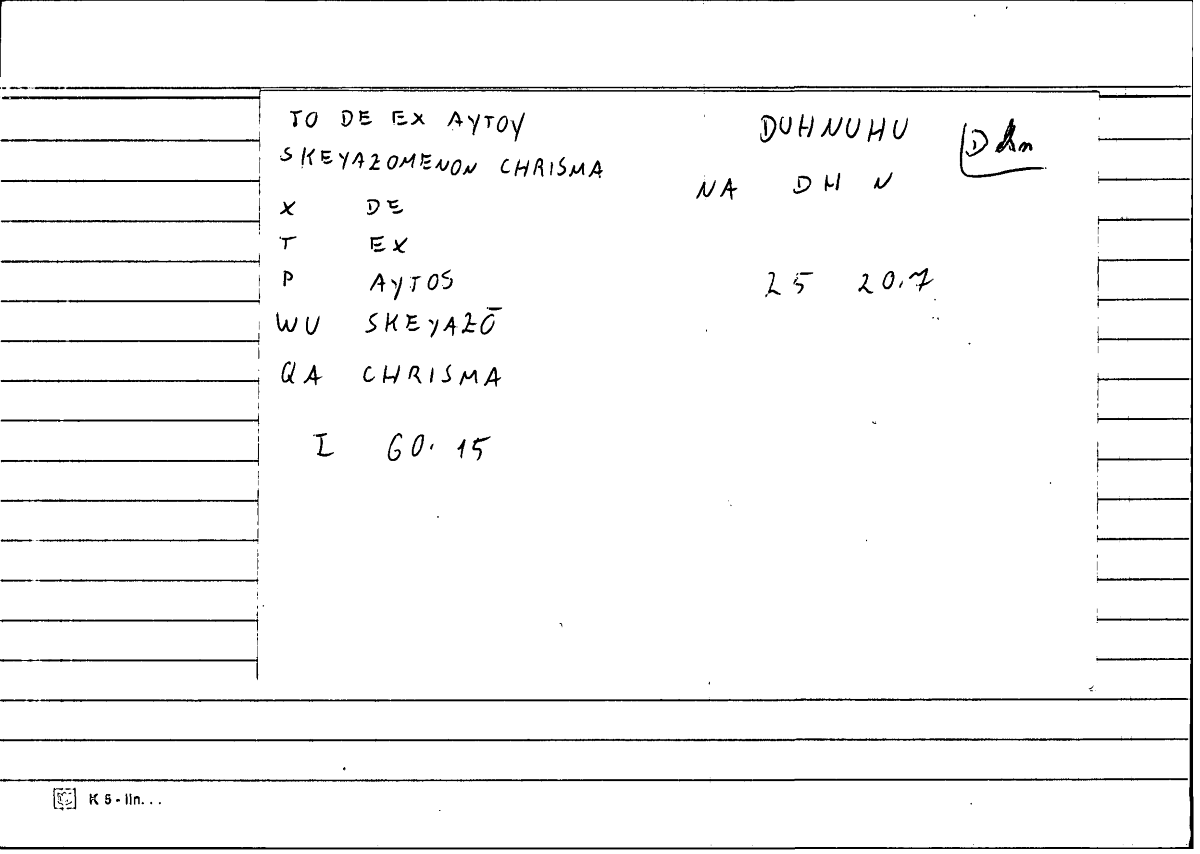 TO DE EX AYTOY
SKEYAZOMENON CHRISMA
X DE
T EX
P AYTOS
WU SKEYAZŌ
QA CHRISMA
I 60.15
DUHNUHU
NA DH N
25 20.7
Dhn
K 5 - lin...